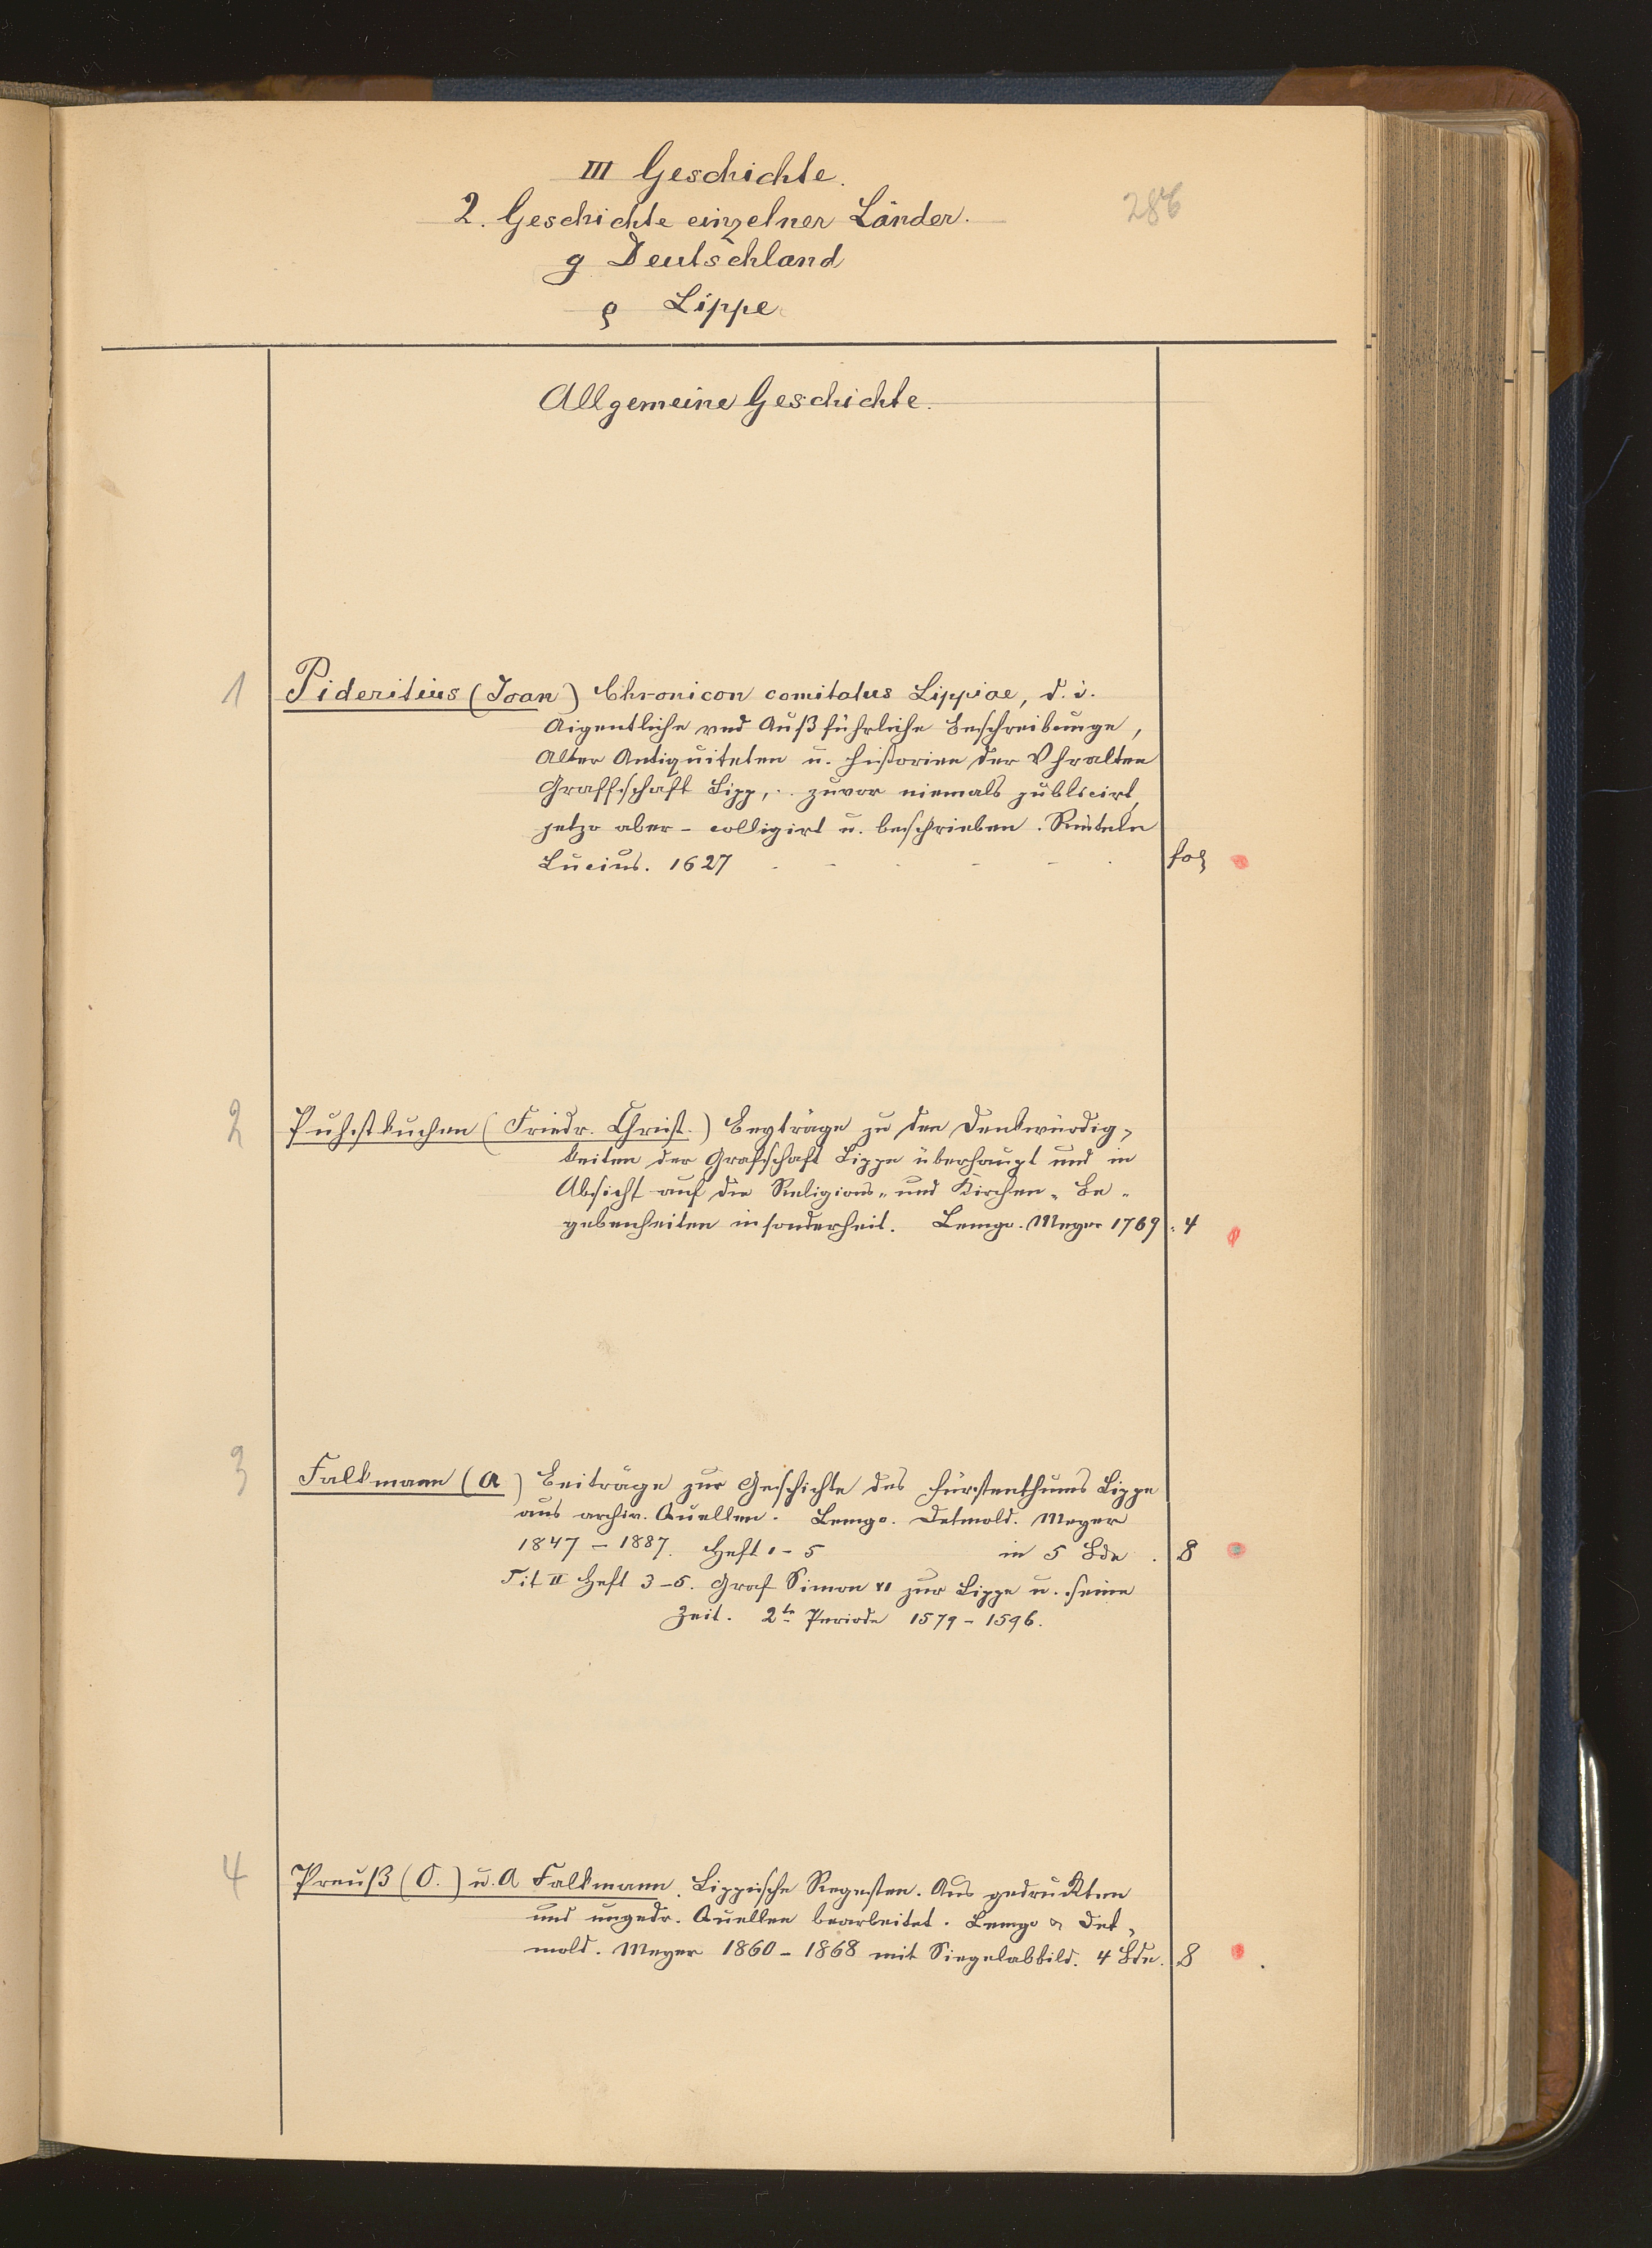 III Geschichte.
2. Geschichte einzelner Länder.
g Deutschland
ϱ Lippe
Allgemeine Geschichte.
1 Pideritius (Joan) Chronicon comitatus Lippiae, d. i.
Aigentliche vnd Außführliche Beschreibunge,
Alter Antiquiteten u. Historien der Vhralten
Graffschaft Lipp, . . zuvor niemals publicirt,
jetzo aber - colligirt u. beschrieben. Rinteln
Lucius. 1627 fol
2 Puhstkuchen (Friedr. Christ.) Beyträge zu den Denkwürdig-
keiten der Grafschaft Lippe überhaupt und in
Absicht auf die Religions- und Kirchen-Be-
gebenheiten insonderheit. Lemgo. Meyer 1769. 4
3 Falkmann (A) Beiträge zur Geschichte des Fürstenthums Lippe
aus archiv. Quellen. Lemgo. Detmold. Meyer
1847 - 1887. Heft 1 - 5 in 5 Bde. 8
Tit II Heft 3-5. Graf Simon VI zur Lippe u. seine
Zeit. 2te Periode 1579 - 1596.
4 Preuß (O.) u. A Falkmann. Lippische Regesten. Aus gedruckten
und ungedr. Quellen bearbeitet. Lemgo & Det-
mold. Meyer 1860 - 1868 mit Siegelabbild. 4 Bde. 8